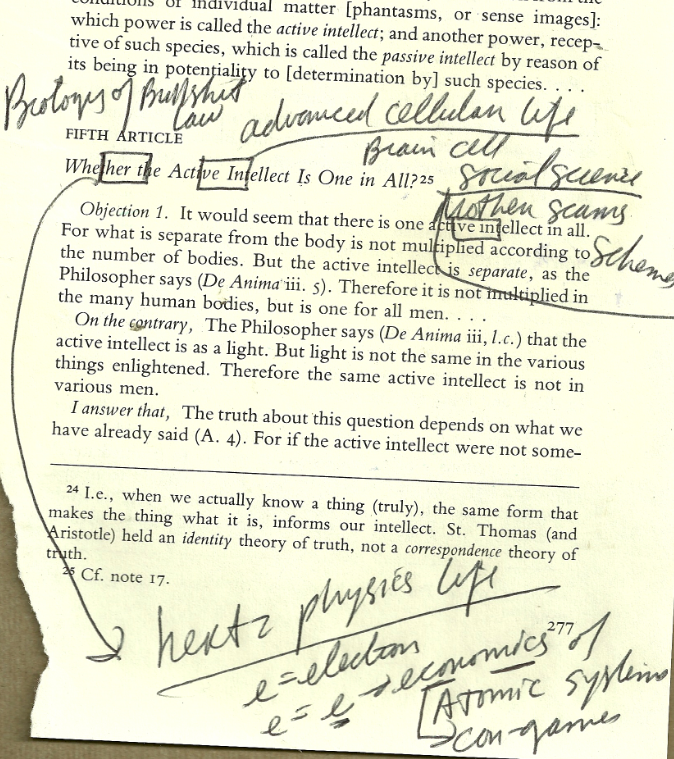 conditions of individual matter [phantasms, or sense images]:
which power is called the active intellect; and another power, recep-
tive of such species, which is called the passive intellect by reason of
its being in potentiality to [determination by] such species. . . .
Biology of Bullshit
Law
advanced cellular life
FIFTH ARTICLE
Brain cell
Whether the Active Intellect Is One in All?25
social science
Mother scams
Objection 1. It would seem that there is one active intellect in all.
For what is separate from the body is not multiplied according to
Schemes
the number of bodies. But the active intellect is separate, as the
Philosopher says (De Anima iii. 5). Therefore it is not multiplied in
the many human bodies, but is one for all men. . . .
On the contrary, The Philosopher says (De Anima iii, l.c.) that the
active intellect is as a light. But light is not the same in the various
things enlightened. Therefore the same active intellect is not in
various men.
I answer that, The truth about this question depends on what we
have already said (A. 4). For if the active intellect were not some-
24 I.e., when we actually know a thing (truly), the same form that
makes the thing what it is, informs our intellect. St. Thomas (and
Aristotle) held an identity theory of truth, not a correspondence theory of
truth.
25 Cf. note 17.
hertz physics life
277
e=electron
e=e→economics of
Atomic systems
con-games